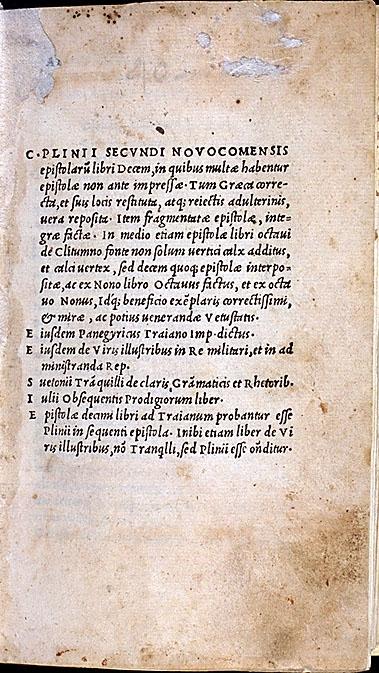 C·PLINII SECVNDI NOVOCOMENSIS
epistolarũ libri Decem, in quibus multæ habentur
epistolæ non ante impressæ. Tum Græca corre-
cta, et suis locis restituta, atq; reiectis adulterinis,
uera reposita. Item fragmentatæ epistolæ, inte-
græ factæ. In medio etiam epistolæ libri octaui
de Clitumno fonte non solum uertici calx additus,
et calci uertex, sed decem quoq; epistolæ interpo-
sitæ, ac ex Nono libro Octauus factus, et ex octa
uo Nonus, Idq; beneficio exẽplaris correctissimi,
& miræ, ac potius uenerandæ Vetustatis.
E iusdem Panegyricus Traiano Imp. dictus.
E iusdem de Viris illustribus in Re militari, et in ad
ministranda Rep.
S uetonii Trãquilli de claris Grãmaticis et Rhetorib.
I ulii Obsequentis Prodigiorum liber.
E pistolæ decimi libri ad Traianum probantur esse
Plinii in sequenti epistola. Inibi etiam liber de Vi
ris illustribus, nõ Tranqlli, sed Plinii esse oñditur.